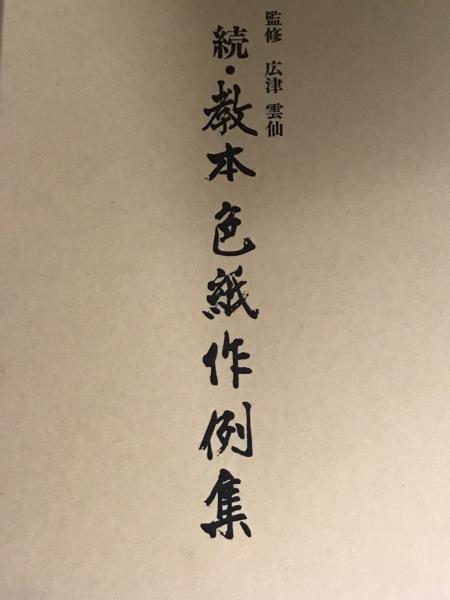 監修 広津 雲仙
続・教本色紙作例集